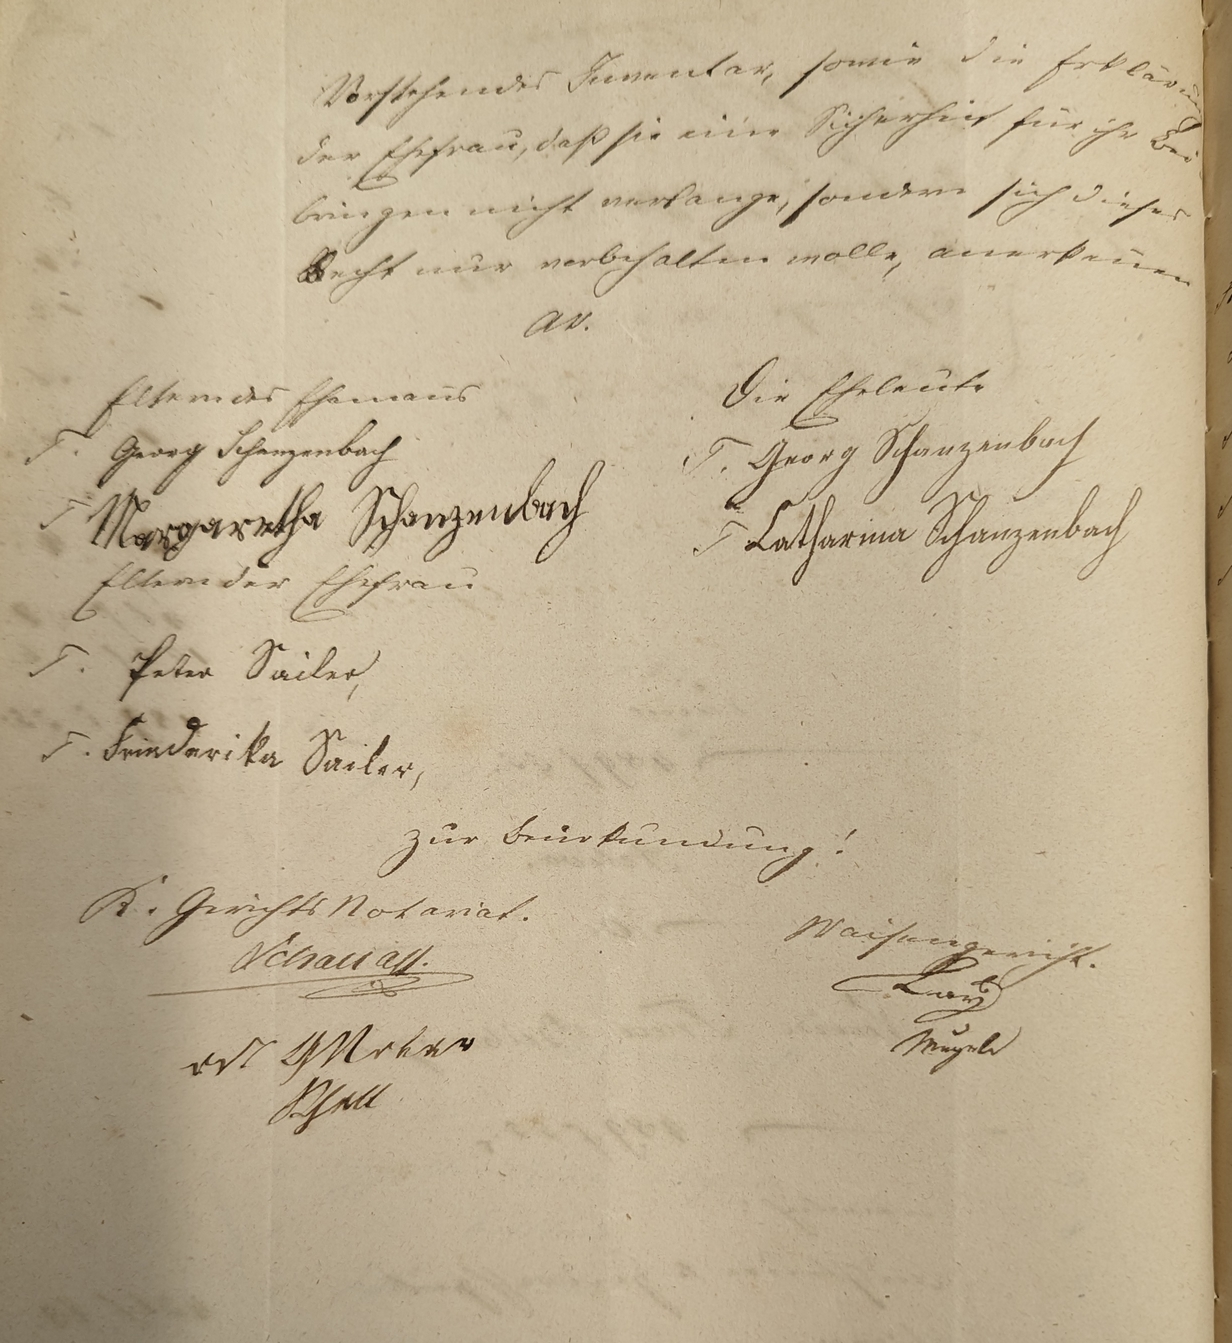 Vorstehendes Inventar, sowie die Erklärung
der Ehefrau, daß sie eine Sicherheit für ihr Bei
bringen nicht verlange, sondern sich dieses
Recht nur vorbehalten wolle, anerkennen
Eltern des Ehemans
Die Eheleute
T. Georg Schanzenbach
T. Georg Schanzenbach
T Margaretha Schanzenbach
T Catharina Schanzenbach
Eltern der Ehefrau
T. Peter Sailer,
T. Friederika Sailer,
Zur Beurkundung!
K. Gerichts Notariat.
Waisengericht.